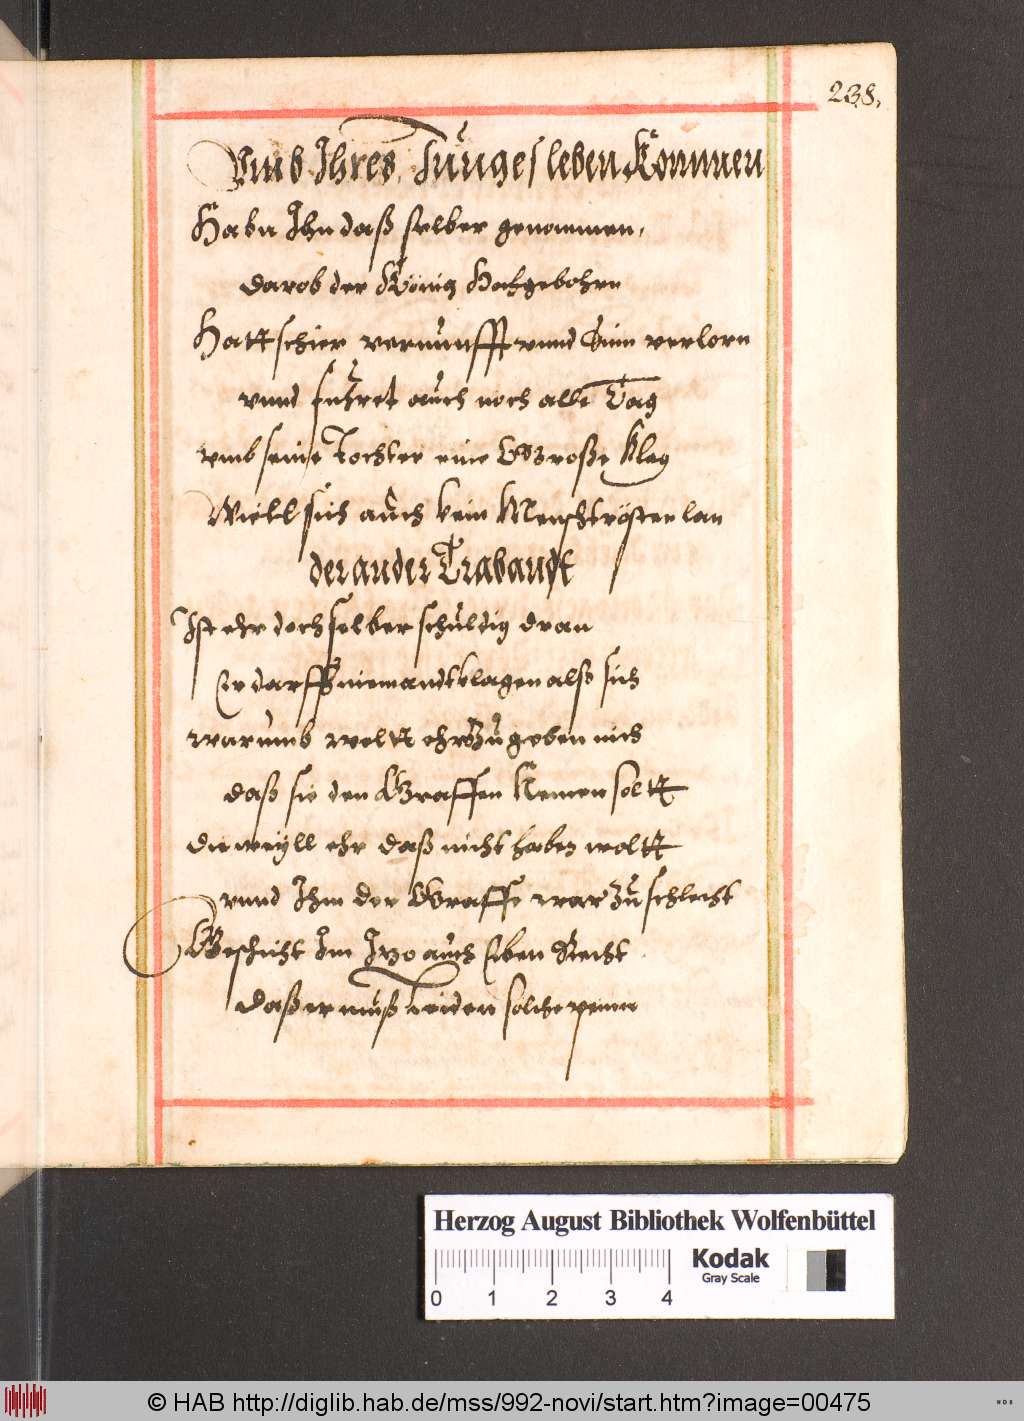 238.
Vmb Ihres Junges leben kommen
Habn Ihn daß selber genommen,
darob der König Hochgebohrn
Hatt schier vernunfft vnnd Sinn verlorn
vnnd führet auch noch alle Tag
vmb seine Tochter eine Große klag
Will sich auch kein Mensch trösten lan
der ander Trabandt
Ist ehr doch selber schuldig dran
Er darffs niemandt klagen alß sich
warumb wolt ehr zugeben nich
daß sie den Graffen Nemen soltt
dieweyll ehr daß nicht haben woltt
vnnd Ihm der Graffe war zu schlecht
Geschicht Im Izo auch Eben Recht
daß er muß leiden solche penn
Herzog August Bibliothek Wolfenbüttel
Kodak
Gray Scale
0 1 2 3 4
© HAB http://diglib.hab.de/mss/992-novi/start.htm?image=00475